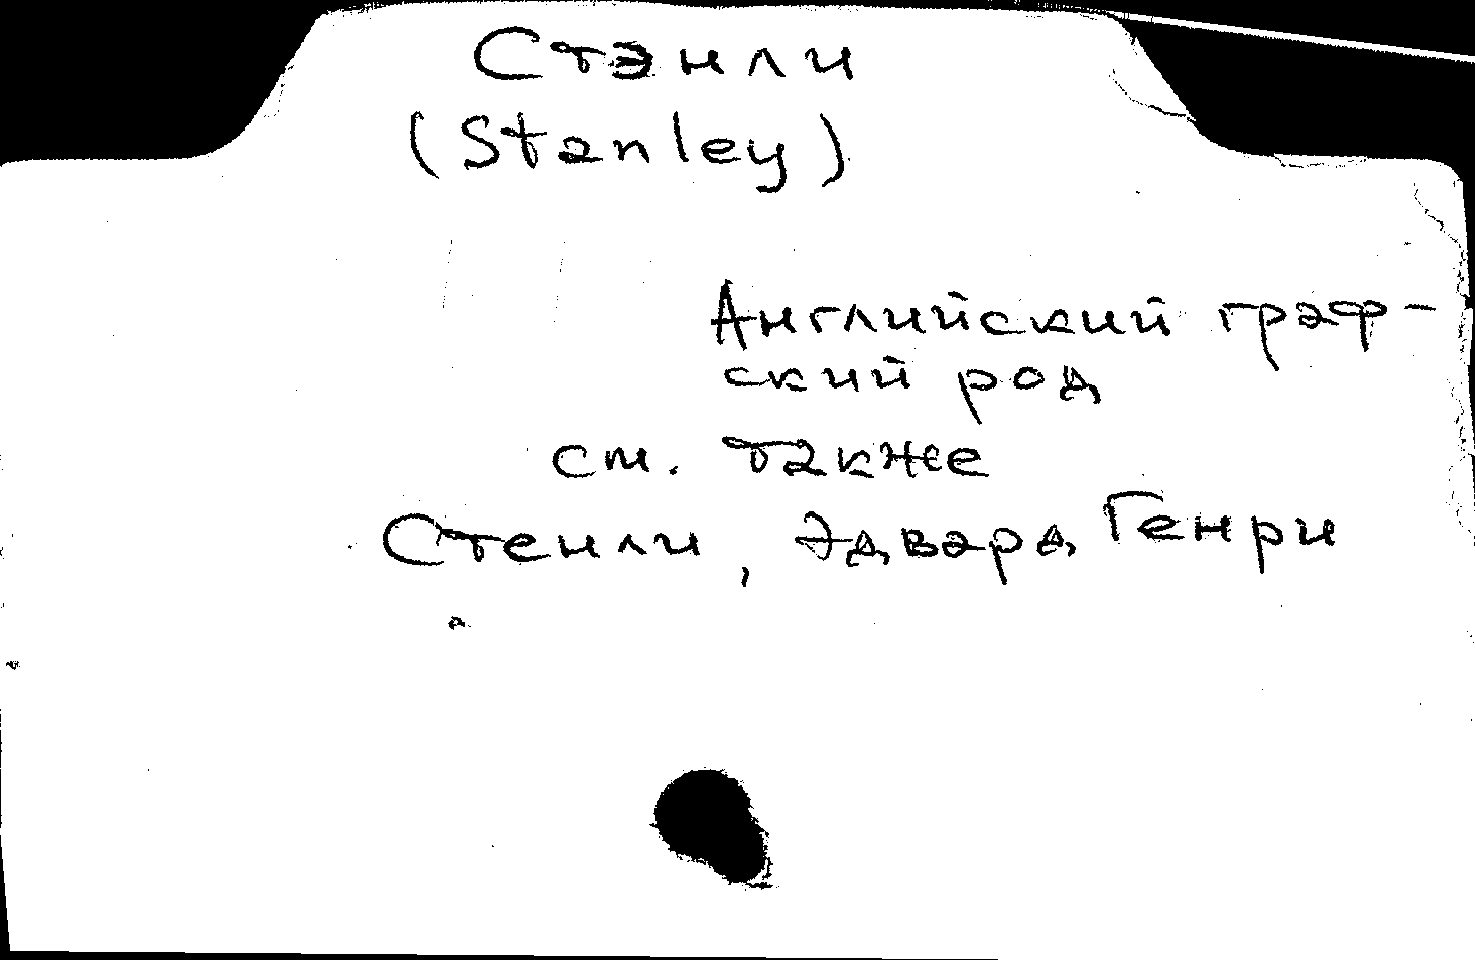 Стэнли
(Stanley)
Английский граф-
ский род
см. также
Стенли, Эдвард Генри